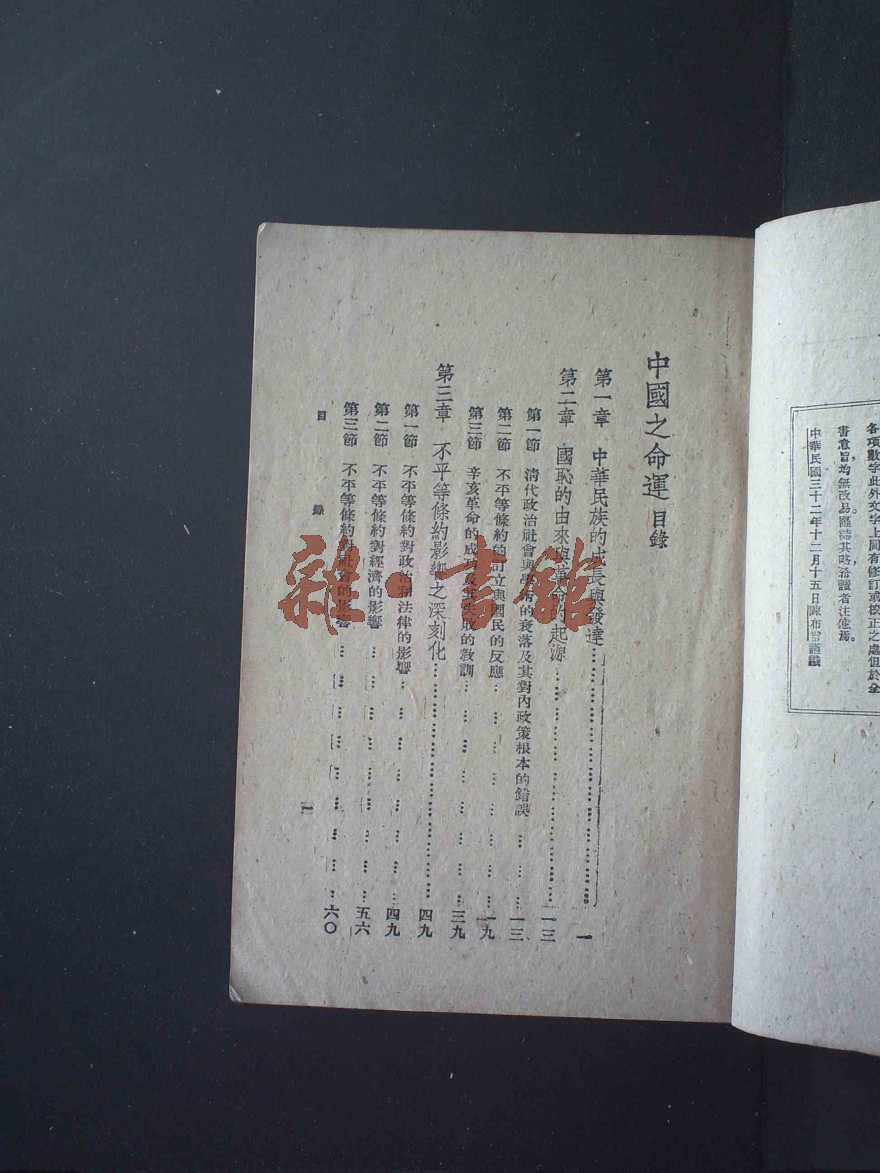 各項數字此外文字上間有修訂或校正之處但於全
書意旨均無改易謹誌其略希讀者注意焉。
中華民國三十二年十二月十五日陳布雷謹識
中國之命運 目錄
第一章 中華民族的成長與發達 一
第二章 國恥的由來與革命的起源 一三
第一節 清代政治社會與學術的衰落及其對內政策根本的錯誤 一三
第二節 不平等條約的訂立與國民的反應 一九
第三節 辛亥革命的成功及其失敗的教訓 三九
第三章 不平等條約影響之深刻化 四九
第一節 不平等條約對政治和法律的影響 四九
第二節 不平等條約對經濟的影響 五六
第三節 不平等條約對社會的影響 六〇
目錄
雜·書館